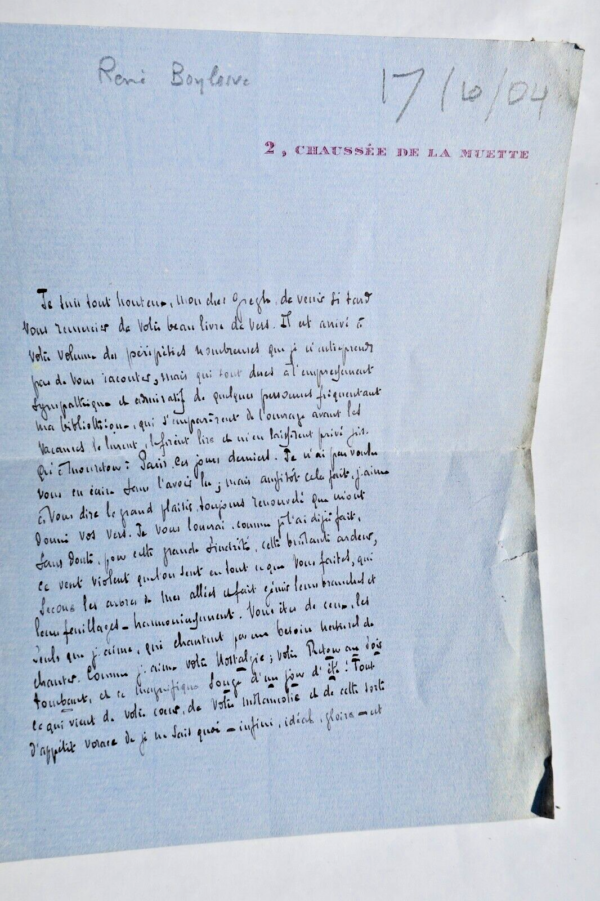 René Boylesve
17/10/04
2, CHAUSSÉE DE LA MUETTE
Je suis tout honteux, mon cher Gregh, de venir si tard
vous remercier de votre beau livre de vers. Il est arrivé à
votre volume des péripéties nombreuses que je n'entreprends
pas de vous raconter, mais qui sont dues à l'empressement
sympathique et admiratif de quelques personnes fréquentant
ma bibliothèque, qui s'emparèrent de l'ouvrage avant les
vacances le lurent, le firent lire et m'en laissèrent privé jus-
qu'à mon retour à Paris, ces jours derniers. Je n'ai pas voulu
vous en écrire sans l'avoir lu ; mais aussitôt cela fait, j'aime
à vous dire le grand plaisir toujours renouvelé que m'ont
donné vos vers. Je vous louerai, comme je l'ai déjà fait,
sans doute, pour cette grande sincérité, cette brûlante ardeur,
ce vent violent qu'on sent en tout ce que vous faites, qui
secoue les arbres de mes allées et fait gémir leurs branches et
leurs feuillages – harmonieusement. Vous êtes de ceux, les
seuls que j'aime, qui chantent par un besoin naturel de
chanter. Comme j'aime votre Nostalgie ; votre Retour au soir
tombant, et ce magnifique Songe d'un jour d'été ! Tout
ce qui vient de votre cœur, de votre mélancolie et de cette sorte
d'appétit vorace de je ne sais quoi – infini, idéal, gloire – est